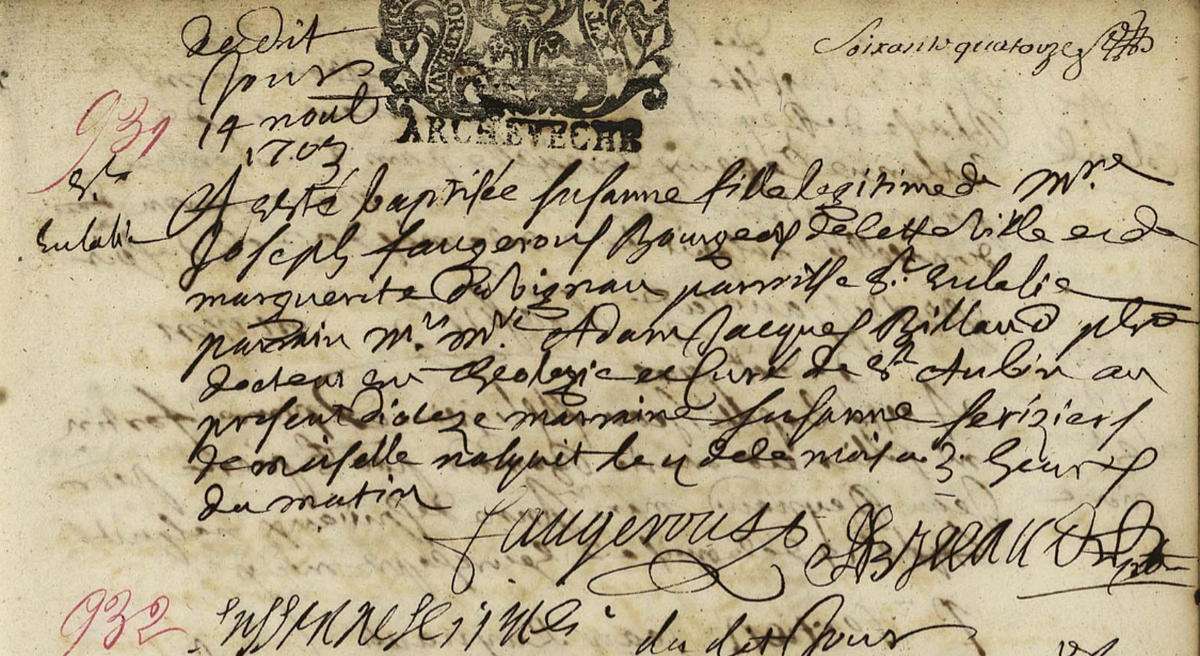 Soixante quatorze
du dit
Jour
14 aout
1703
ARCHEVECHE
931
Ste
Eulalie
A esté baptisée Susanne fille legitime de Mre
Joseph faugerous Bourgeois de cette ville et de
marguerite Dubignau parroisse Ste Eulalie
parrain Mr Me Adam Jacques Billaud pbre
docteur en Theologie et Curé de St Aubin au
present dioceze marraine Susanne seriziers
demoiselle nasquit le 11 de ce mois a 3 heures
du matin
faugerous
932
du dit Jour